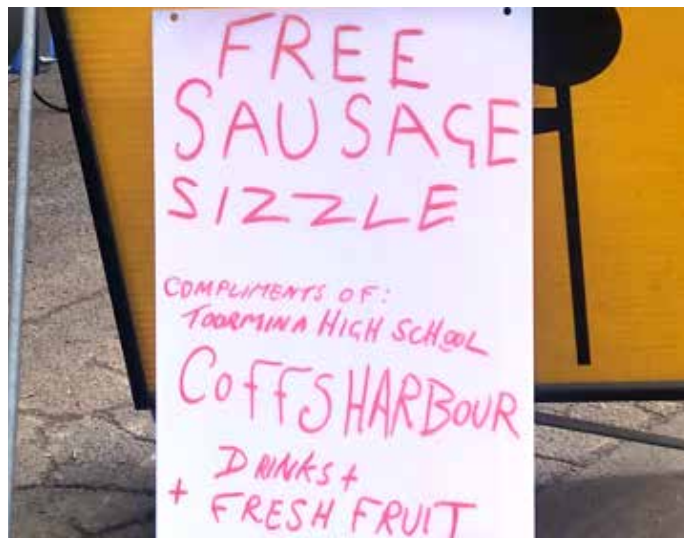 FREE
SAUSAGE
SIZZLE
COMPLIMENTS OF:
TOORMINA HIGH SCHOOL
COFFS HARBOUR
DRINKS +
+ FRESH FRUIT